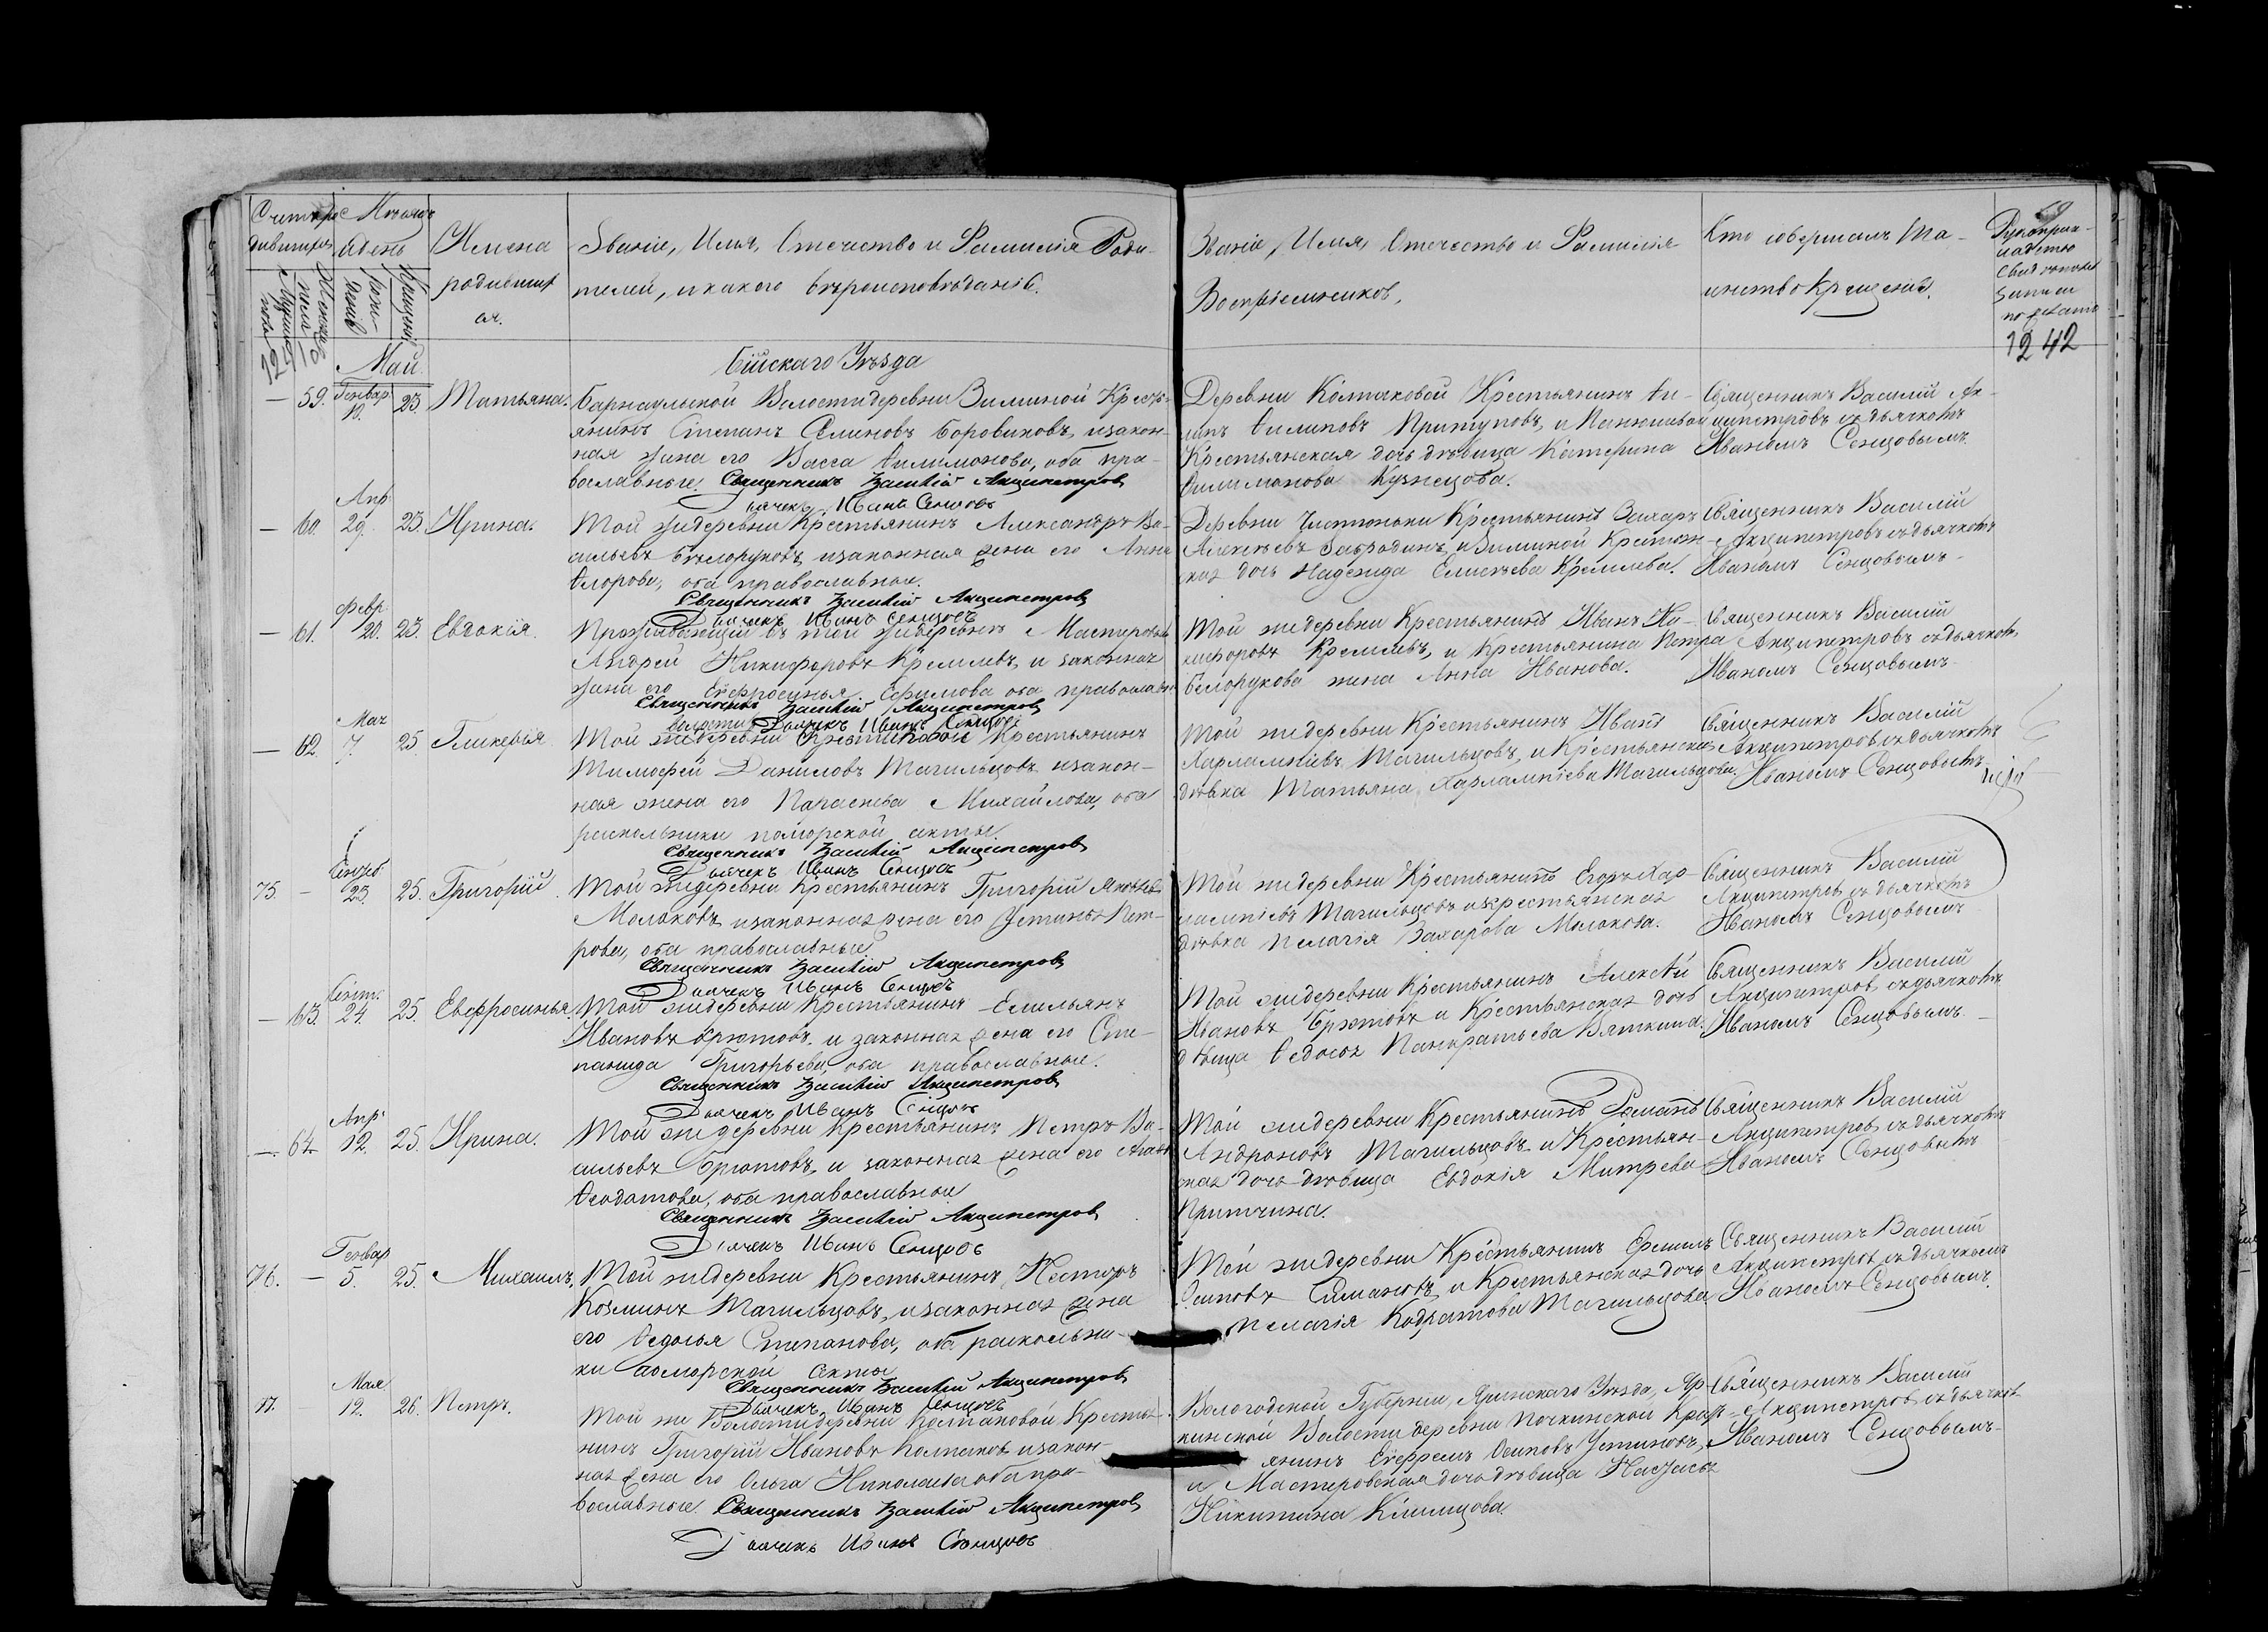 Счетъ ро- Мѣсяцъ
дившихся и день
Имена
родившихся.
Званіе, Имя, Отчество и Фамилія Роди-
телей, и какого вѣроисповѣданія.
Мужеска пола
Женска пола
рожденія
Крещенія
Май.
Бійскаго Уѣзда
— 59. Генвар. 10. 23. Татьяна.
Барнаульской Волости деревни Зиминой Крестъ-
янинъ Степанъ Боровиковъ, и закон-
ная жена его Васса Филимонова, оба пра-
вославные. Священникъ Василій Акципетровъ
Дьячекъ Иванъ Сенцовъ
— 60. Апр. 29. 23. Ирина.
Той же деревни Крестьянинъ Александръ Ва-
сильевъ Бѣлоруковъ, и законная жена его Анна
оба православные.
Священникъ Василій Акципетровъ
Дьячекъ Иванъ Сенцовъ
— 61. Февр. 20. 23. Евдокія.
Проживающій въ той же деревнѣ Мастеровой
Андрей Никифоровъ Кремлевъ, и законная
жена его Ефросинья Ефимова оба православн.
Священникъ Василій Акципетровъ
волости Дьячекъ Иванъ Сенцовъ
— 62. Мая 7. 25. Гликерья
Той же деревни Крестьянинъ
Тимофей Даниловъ Тагильцовъ, и закон-
ная жена его Параскева Михайлова, оба
раскольники поморской секты.
Священникъ Василій Акципетровъ
Дьячекъ Иванъ Сенцовъ
75. — 23. 25. Григорій.
Той же деревни Крестьянинъ Григорій Яковлевъ
Молоковъ, и законная жена его Устинья Пет-
рова, оба православные.
Священникъ Василій Акципетровъ
Дьячекъ Иванъ Сенцовъ
— 63. Сент. 24. 25. Евфросинья.
Той же деревни Крестьянинъ Емильянъ
Ивановъ Брютовъ, и законная жена его Сте-
панида Григорьева, оба православные.
Священникъ Василій Акципетровъ
Дьячекъ Иванъ Сенцовъ
— 64. Апр. 12. 25. Ирина.
Той же деревни Крестьянинъ Петръ Ва-
сильевъ Брютовъ, и законная жена его
Феодотова, оба православные
Священникъ Василій Акципетровъ
Дьячекъ Иванъ Сенцовъ
76. — Генвар 5. 25. Михаилъ.
Той же деревни Крестьянинъ Несторъ
Козминъ Тагильцовъ, и законная жена
его Федосья Степанова, оба раскольни-
ки поморской секты
Священникъ Василій Акципетровъ
Дьячекъ Иванъ Сенцовъ
77. Мая 12. 26. Петръ.
Той же Волости деревни Колпаковой Крестья-
нинъ Григорій Ивановъ Колпаковъ, и закон-
ная жена его Ольга Николаева оба пра-
вославные. Священникъ Василій Акципетровъ
Дьячекъ Иванъ Сенцовъ
Званіе, Имя, Отчество и Фамилія
Воспріемниковъ.
Кто совершалъ Та-
инство Крещенія.
59
Рукоприк-
ладство
свидѣтелей
записи
по желанію
1242
Деревни Колпаковой Крестьянинъ Фи-
липъ Филиповъ Притуповъ, и
Крестьянская дочь дѣвица Катерина
Филимонова Кузнецова.
Священникъ Василій Ак-
ципетровъ съ дьячкомъ
Иваномъ Сенцовымъ.
Деревни Чистюньки Крестьянинъ Захаръ
Алексѣевъ Забродинъ, и Зиминой Крестьян-
ская дочь Надежда Елисѣева Кремлева.
Священникъ Василій
Акципетровъ съ дьячкомъ
Иваномъ Сенцовымъ.
Той же деревни Крестьянинъ Иванъ Ни-
кифоровъ Кремлевъ, и Крестьянина Петра
Белорукова жена Анна Иванова.
Священникъ Василій
Акципетровъ съ дьячкомъ
Иваномъ Сенцовымъ.
Той же деревни Крестьянинъ Иванъ
Харлампіевъ Тагильцовъ, и Крестьянская
дѣвка Татьяна Харлампіева Тагильцова.
Священникъ Василій
Акципетровъ съ дьячкомъ
Иваномъ Сенцовымъ.
Той же деревни Крестьянинъ Егоръ Хар-
лампіевъ Тагильцовъ и крестьянская
дѣвка Пелагія Захарова Молокова.
Священникъ Василій
Акципетровъ съ дьячкомъ
Иваномъ Сенцовымъ.
Той же деревни Крестьянинъ Алексѣй
Ивановъ Брютовъ и Крестьянская дочь
дѣвица Федосья Панкратьева Вяткина.
Священникъ Василій
Акципетровъ съ дьячкомъ
Иваномъ Сенцовымъ.
Той же деревни Крестьянинъ Романъ
Андроновъ Тагильцовъ, и Крестьян-
ская дочь дѣвица Евдокія Митрева
Притчина.
Священникъ Василій
Акципетровъ съ дьячкомъ
Иваномъ Сенцовымъ
Той же деревни Крестьянинъ Ермилъ
Осиповъ Симановъ, и Крестьянская дочь
Пелагія Кодратова Тагильцова.
Священникъ Василій
Акципетровъ съ дьячкомъ
Иваномъ Сенцовымъ.
Вологодской Губерніи, Яринскаго Уѣзда,
Волости деревни Почкинской Кресть-
янинъ Ефремъ Осиповъ Устиновъ,
и Мастеровская дочь дѣвица Настасья
Никитина Климцова.
Священникъ Василій
Акципетровъ съ дьячкомъ
Иваномъ Сенцовымъ.